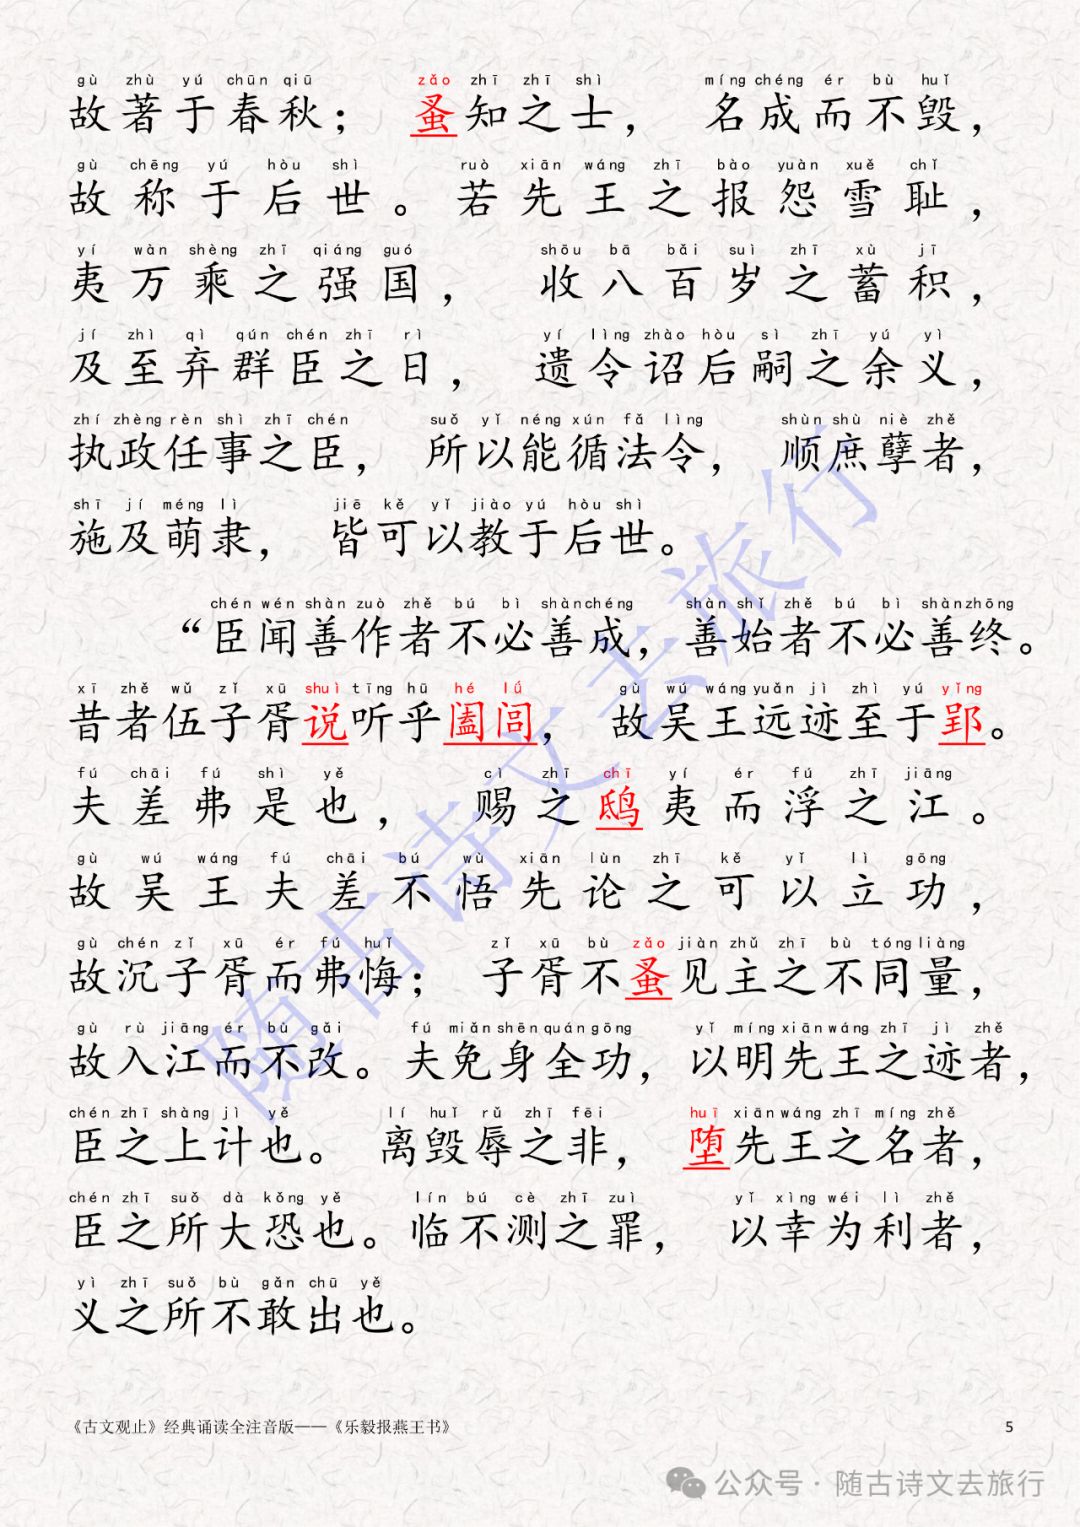 gù zhù yú chūn qiū zǎo zhī zhī shì míng chéng ér bù huǐ
故著于春秋；蚤知之士，名成而不毁，
gù chēng yú hòu shì ruò xiān wáng zhī bào yuàn xuě chǐ
故称于后世。若先王之报怨雪耻，
yí wàn shèng zhī qiáng guó shōu bā bǎi suì zhī xù jī
夷万乘之强国，收八百岁之蓄积，
jí zhì qì qún chén zhī rì yí lìng zhào hòu sì zhī yú yì
及至弃群臣之日，遗令诏后嗣之余义，
zhí zhèng rèn shì zhī chén suǒ yǐ néng xún fǎ lìng shùn shù niè zhě
执政任事之臣，所以能循法令，顺庶孽者，
shī jí méng lì jiē kě yǐ jiào yú hòu shì
施及萌隶，皆可以教于后世。
chén wén shàn zuò zhě bú bì shàn chéng shàn shǐ zhě bú bì shàn zhōng
“臣闻善作者不必善成，善始者不必善终。
xī zhě wǔ zǐ xū shuì tīng hū hé lǘ gù wú wáng yuǎn jì zhì yú yǐng
昔者伍子胥说听乎阖闾，故吴王远迹至于郢。
fú chāi fú shì yě cì zhī chī yí ér fú zhī jiāng
夫差弗是也，赐之鸱夷而浮之江。
gù wú wáng fú chāi bú wù xiān lùn zhī kě yǐ lì gōng
故吴王夫差不悟先论之可以立功，
gù chén zǐ xū ér fú huǐ zǐ xū bù zǎo jiàn zhǔ zhī bù tóng liàng
故沉子胥而弗悔；子胥不蚤见主之不同量，
gù rù jiāng ér bù gǎi fú miǎn shēn quán gōng yǐ míng xiān wáng zhī jì zhě
故入江而不改。夫免身全功，以明先王之迹者，
chén zhī shàng jì yě lí huǐ rǔ zhī fēi huī xiān wáng zhī míng zhě
臣之上计也。离毁辱之非，堕先王之名者，
chén zhī suǒ dà kǒng yě lín bú cè zhī zuì yǐ xìng wéi lì zhě
臣之所大恐也。临不测之罪，以幸为利者，
yì zhī suǒ bù gǎn chū yě
义之所不敢出也。
《古文观止》经典诵读全注音版——《乐毅报燕王书》 5
随古诗文去旅行
公众号·随古诗文去旅行